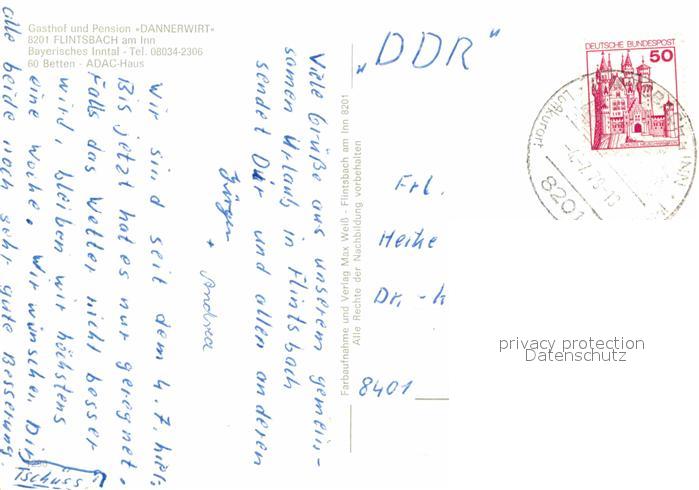 Gasthof und Pension »DANNERWIRT«
8201 FLINTSBACH am Inn
Bayerisches Inntal - Tel. 08034-2306
60 Betten - ADAC-Haus
Viele Grüße aus unserem gemein-
samen Urlaub in Flintsbach
sendet Dir und allen anderen
Jürgen + Andrea
Wir sind seit dem 4.7. hier.
Bis jetzt hat es nur geregnet.
Falls das Wetter nicht besser
wird, bleiben wir höchstens
eine Woche. Wir wünschen Dir
alle beide noch sehr gute Besserung.
Tschüss!
Farbaufnahme und Verlag Max Weiß - Flintsbach am Inn 8201
Alle Rechte der Nachbildung vorbehalten
„DDR"
DEUTSCHE BUNDESPOST
50
Luftkurort
8201
Frl.
Heike
Dr. -k
8401
privacy protection
Datenschutz